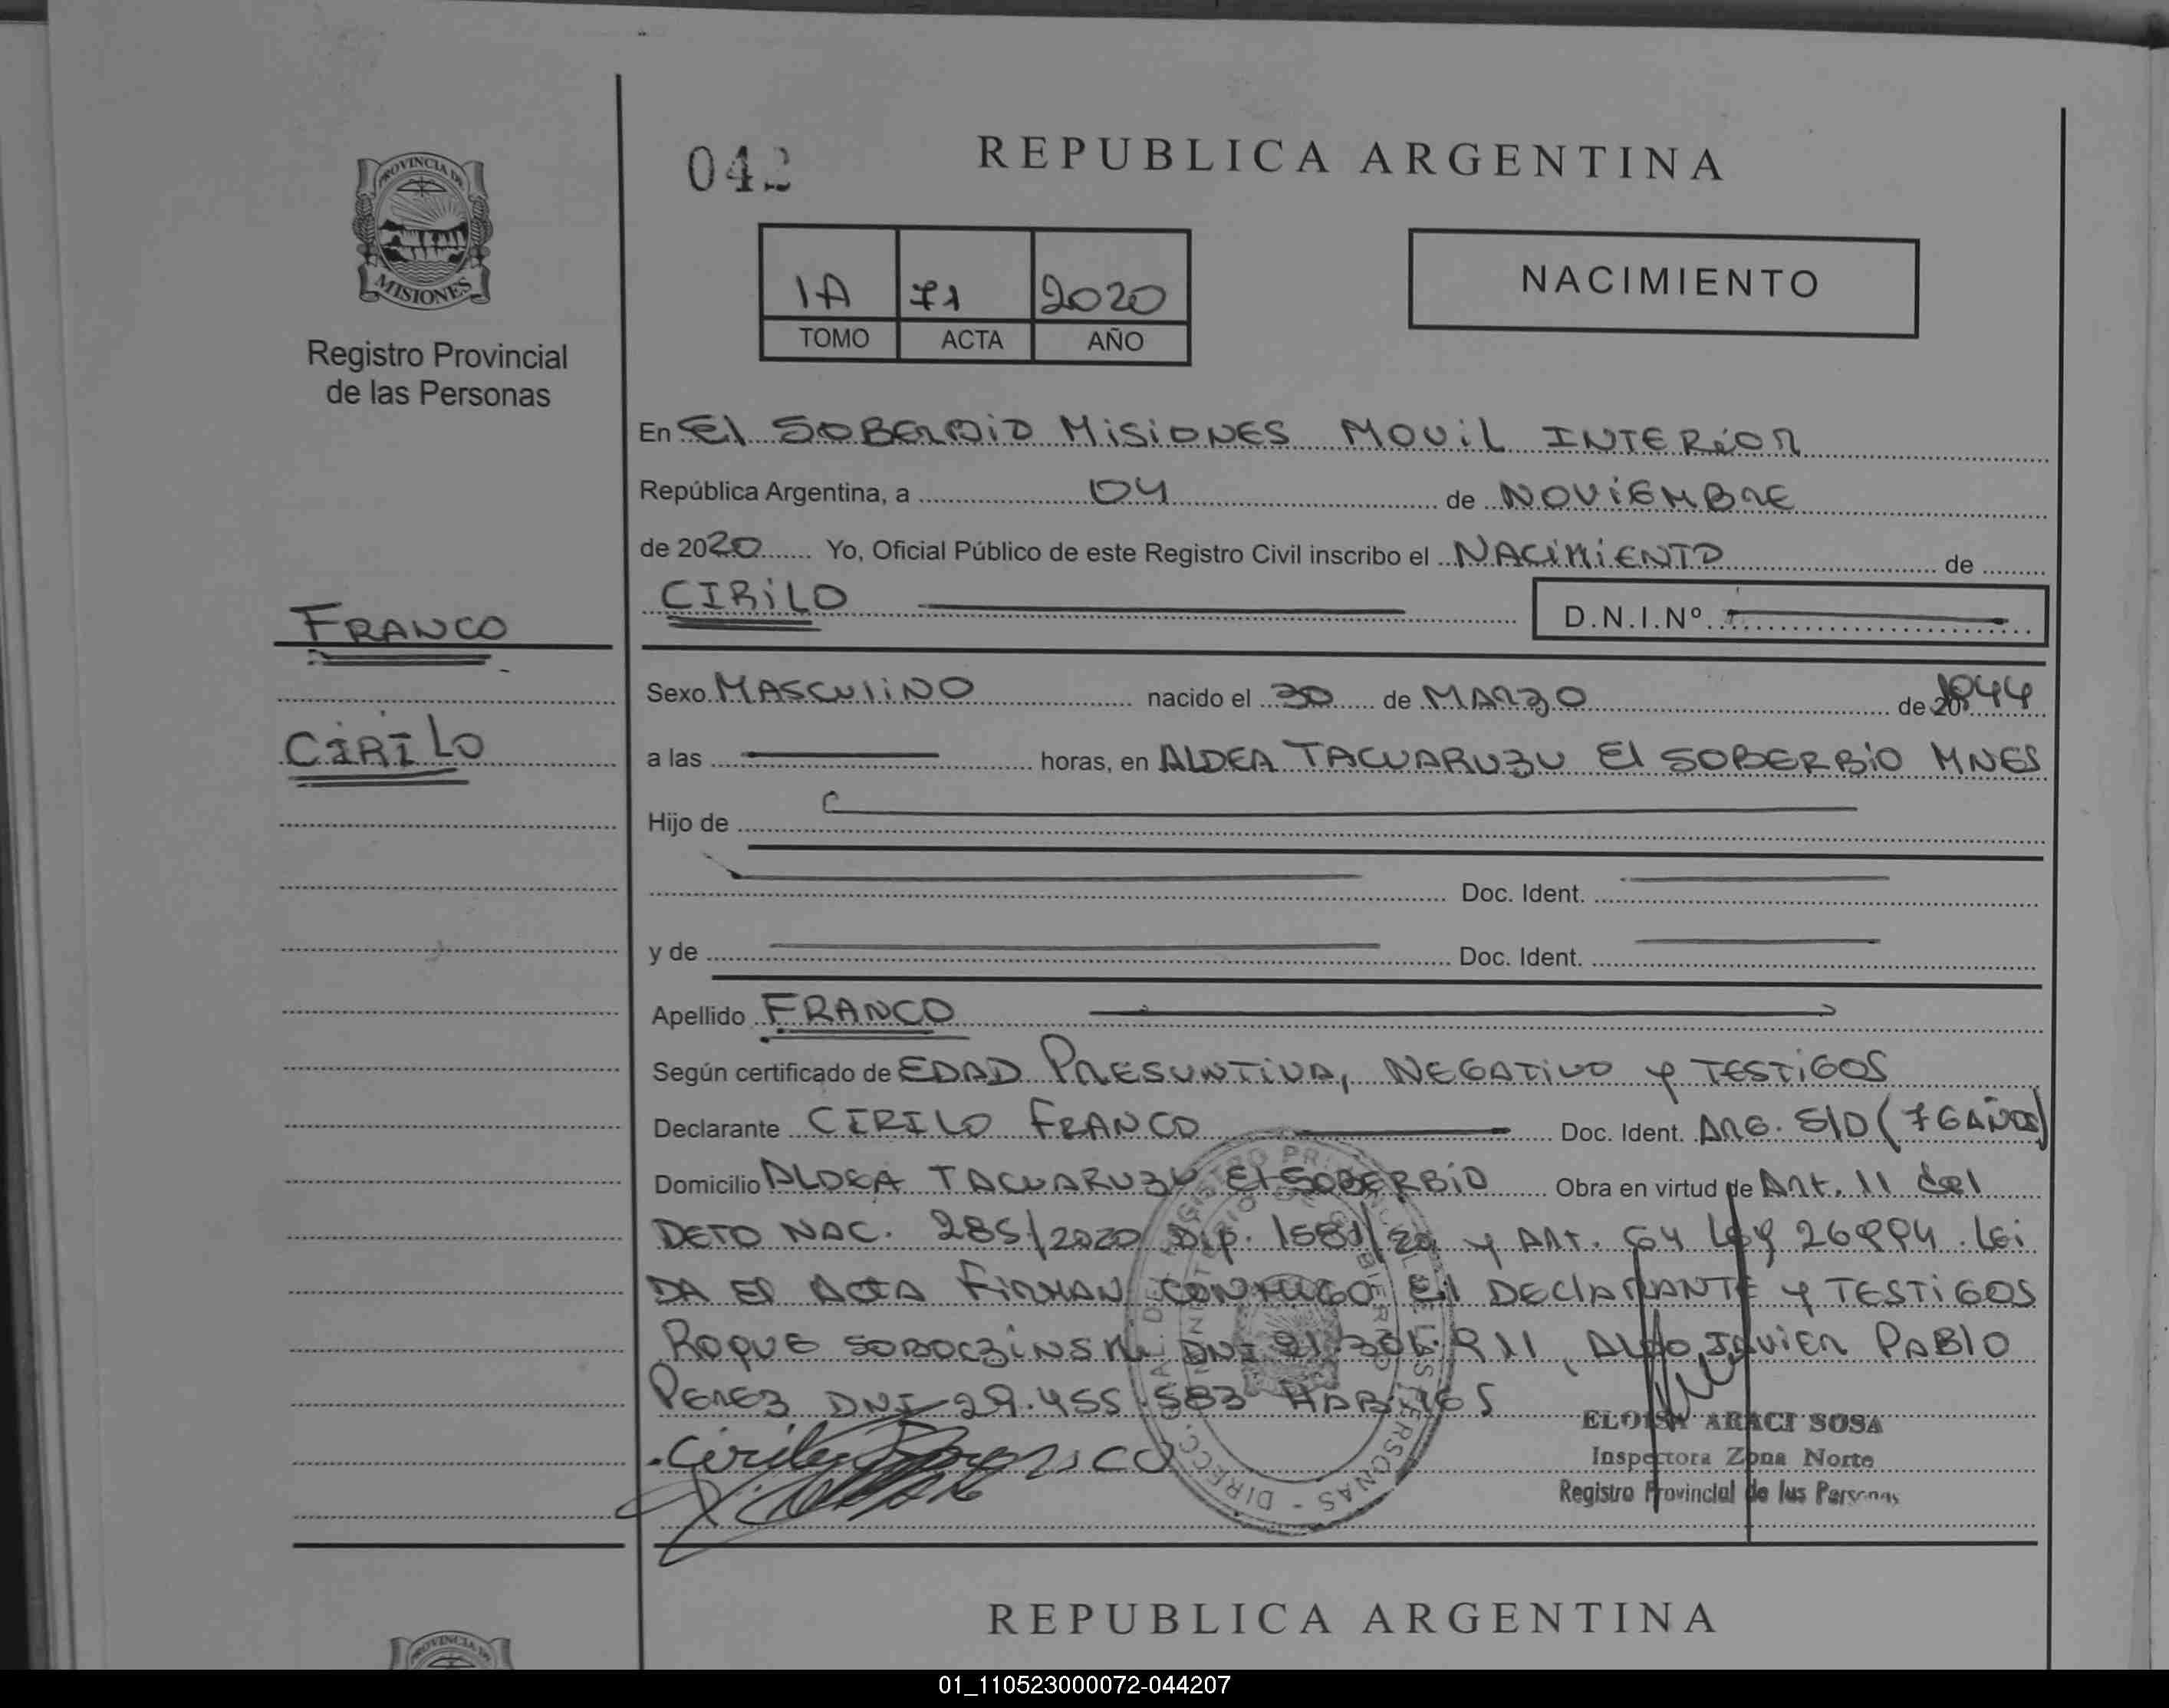 PROVINCIA DE
MISIONES
Registro Provincial
de las Personas
FRANCO
CIRILO
042
REPUBLICA ARGENTINA
1A 71 2020
TOMO ACTA AÑO
NACIMIENTO
En El SOBERBIO MISIONES MOVIL INTERIOR
República Argentina, a 04 de NOVIEMBRE
de 2020 Yo, Oficial Público de este Registro Civil inscribo el NACIMIENTO de
CIRILO D.N.I.Nº
Sexo MASCULINO nacido el 30 de MARZO de 1944
a las horas, en ALDEA TACUARUZU El SOBERBIO MNES
Hijo de
Doc. Ident.
y de Doc. Ident.
Apellido FRANCO
Según certificado de EDAD PRESUNTIVA, NEGATIVO y TESTIGOS
Declarante CIRILO FRANCO Doc. Ident. ARG. S/D (76 AÑOS)
Domicilio ALDEA TACUARUZU El SOBERBIO Obra en virtud de Art. 11 del
DETO NAC. 285/2020 Dip. 1580/20 y ART. 64 Ley 26994. LEI
DA EL ACTA FIRMAN CONMIGO El DEClARANTE y TESTIGOS
ROQUE SOBOCZINSKI DNI 21.306.911, ALDO JAVIER PABlO
PEREZ DNI 29.455.583 HAB. 165
Cirilo Franco
ELOISA ARACI SOSA
Inspectora Zona Norte
Registro Provincial de las Personas
REPUBLICA ARGENTINA
PROVINCIA
01_110523000072-044207